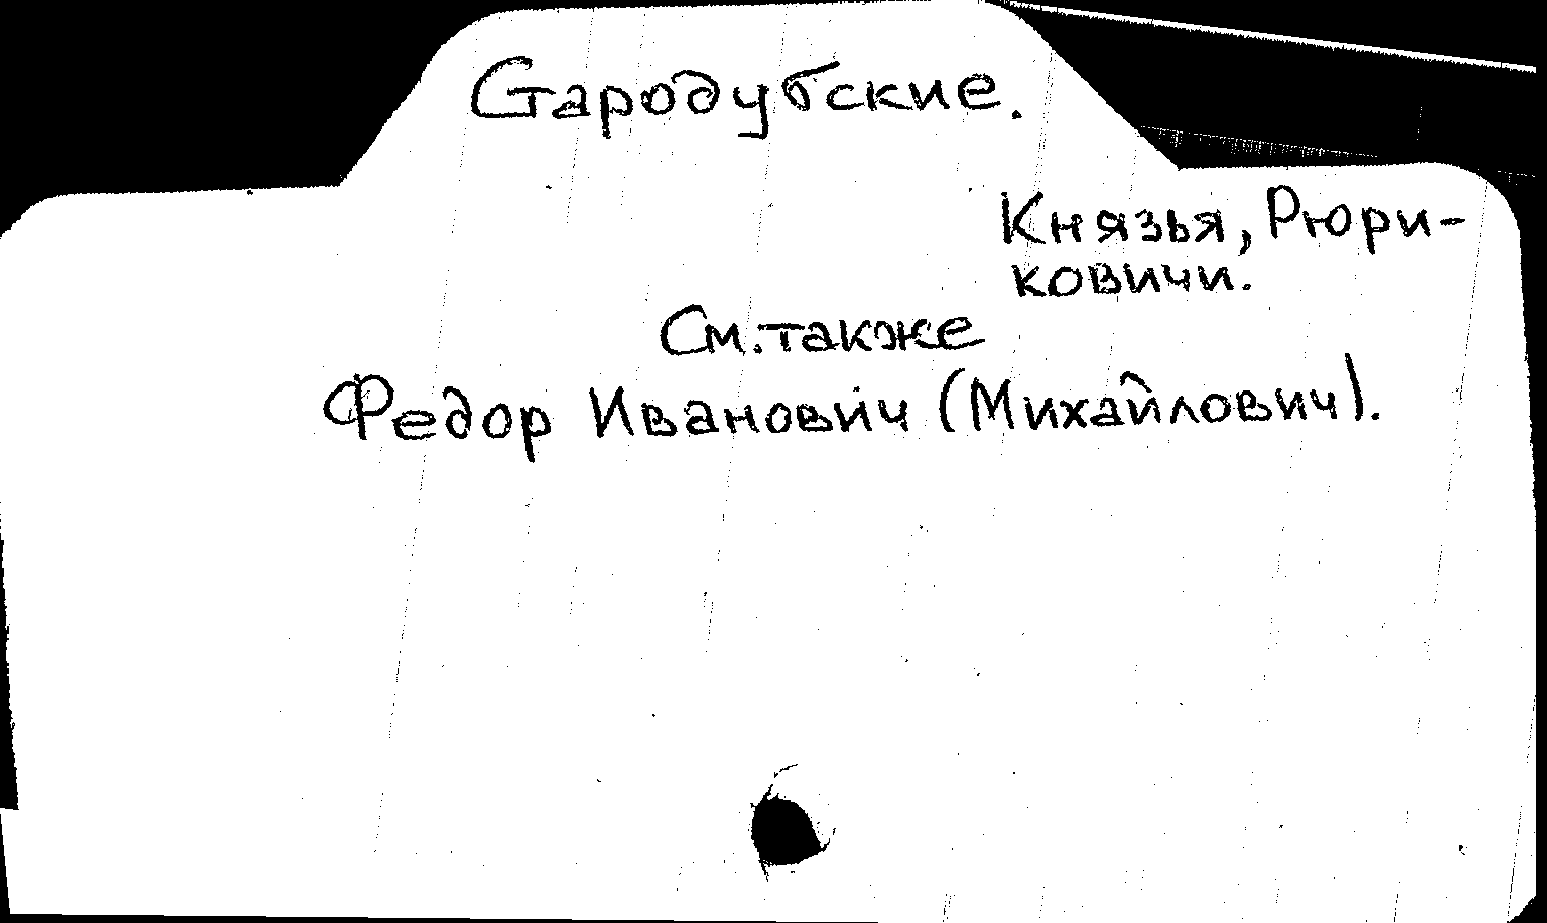 Стародубские.
Князья, Рюри-
ковичи.
См. также
Федор Иванович (Михайлович).